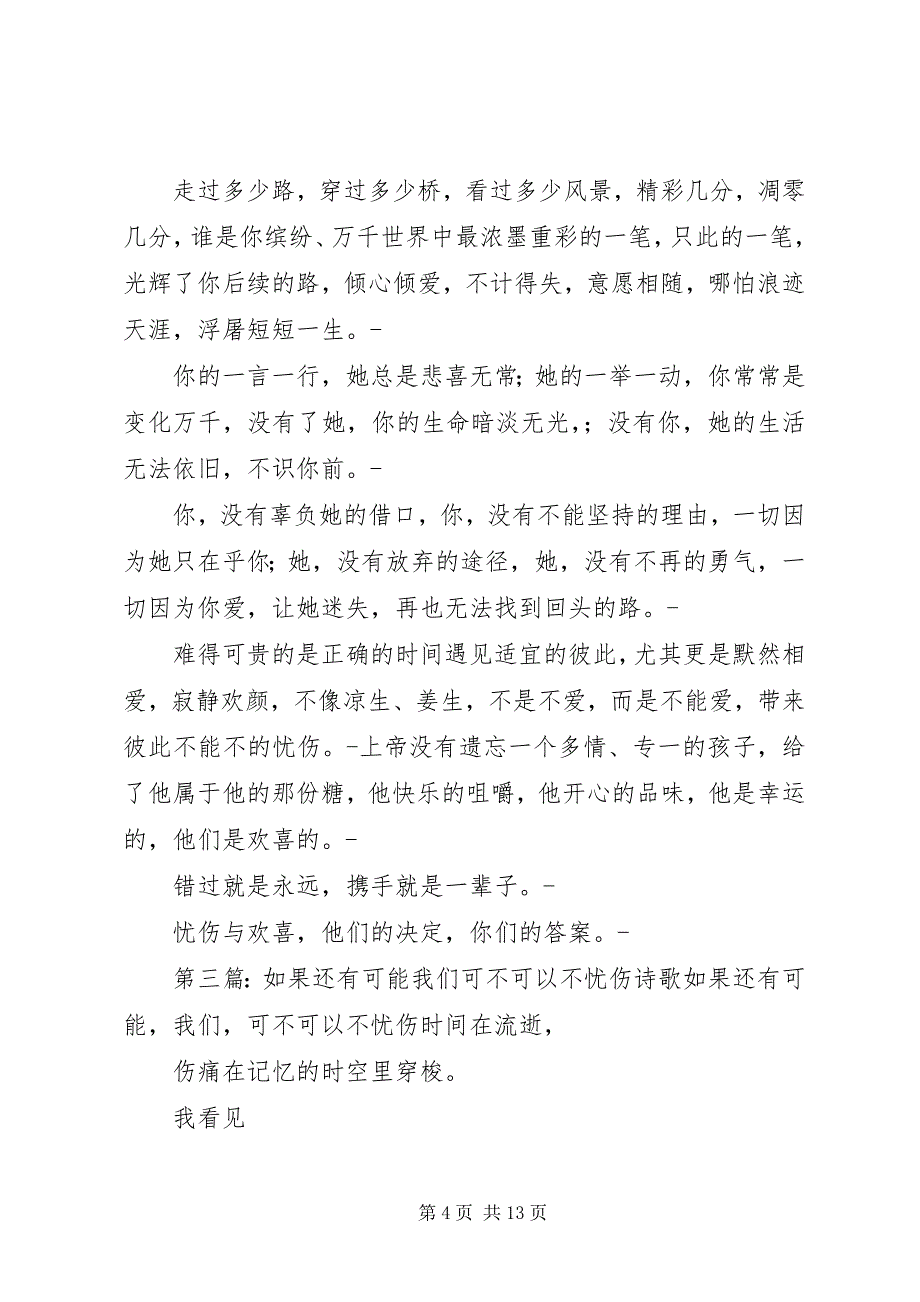 走过多少路，穿过多少桥，看过多少风景，精彩几分，凋零
几分，谁是你缤纷、万千世界中最浓墨重彩的一笔，只此的一笔，
光辉了你后续的路，倾心倾爱，不计得失，意愿相随，哪怕浪迹
天涯，浮屠短短一生。-
你的一言一行，她总是悲喜无常；她的一举一动，你常常是
变化万千，没有了她，你的生命暗淡无光，；没有你，她的生活
无法依旧，不识你前。-
你，没有辜负她的借口，你，没有不能坚持的理由，一切因
为她只在乎你；她，没有放弃的途径，她，没有不再的勇气，一
切因为你爱，让她迷失，再也无法找到回头的路。-
难得可贵的是正确的时间遇见适宜的彼此，尤其更是默然相
爱，寂静欢颜，不像凉生、姜生，不是不爱，而是不能爱，带来
彼此不能不的忧伤。-上帝没有遗忘一个多情、专一的孩子，给
了他属于他的那份糖，他快乐的咀嚼，他开心的品味，他是幸运
的，他们是欢喜的。-
错过就是永远，携手就是一辈子。-
忧伤与欢喜，他们的决定，你们的答案。-
第三篇：如果还有可能我们可不可以不忧伤诗歌如果还有可
能，我们，可不可以不忧伤时间在流逝，
伤痛在记忆的时空里穿梭。
我看见
第 4 页 共 13 页